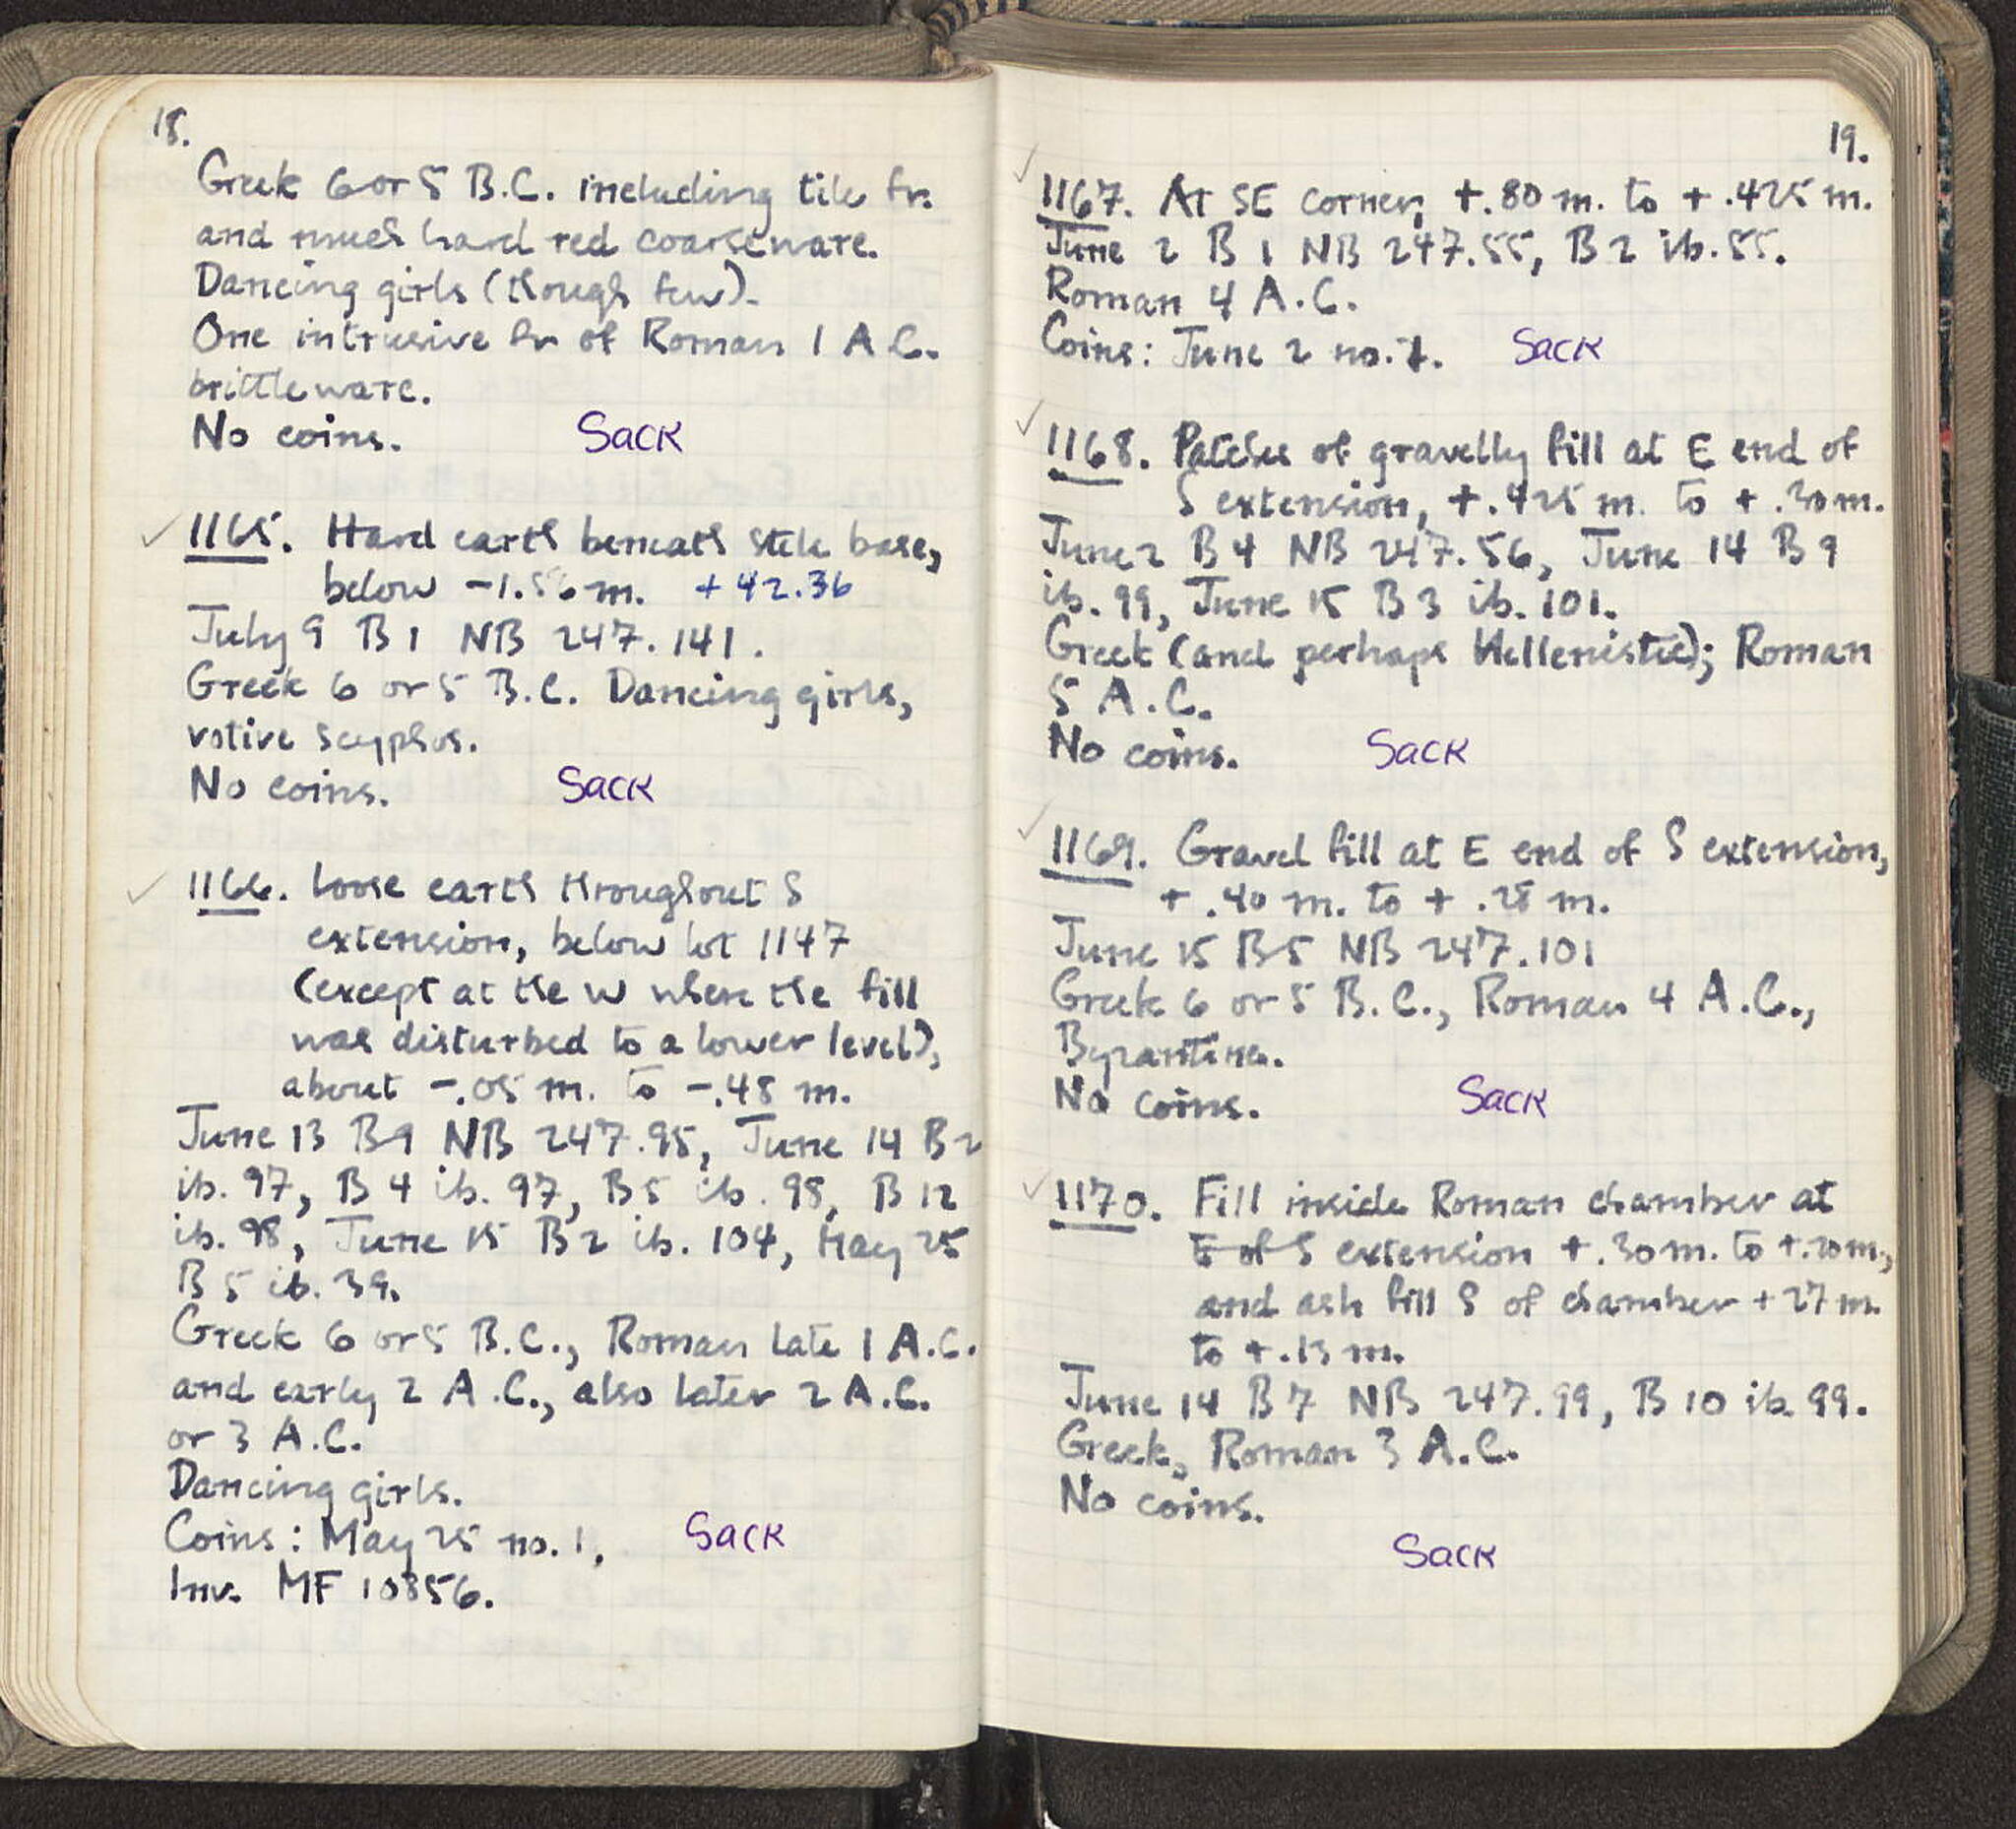 18.
Greek 6 or 5 B.C. including tile fr.
and much hard red coarseware.
Dancing girls (though few).
One intrusive fr of Roman 1 A.C.
brittleware.
No coins. Sack
1165. Hard earth beneath stele base,
below -1.56 m. +42.36
July 9 B 1 NB 247.141.
Greek 6 or 5 B.C. Dancing girls,
votive scyphos.
No coins. Sack
1166. Loose earth throughout S
extension, below lot 1147
(except at the W where the fill
was disturbed to a lower level),
about -.05 m. to -.48 m.
June 13 B9 NB 247.95, June 14 B 2
ib. 97, B 4 ib. 97, B 5 ib. 98, B 12
ib. 98, June 15 B 2 ib. 104, May 25
B 5 ib. 39.
Greek 6 or 5 B.C., Roman late 1 A.C.
and early 2 A.C., also later 2 A.C.
or 3 A.C.
Dancing girls.
Coins: May 25 no. 1. Sack
Inv. MF 10856.
19.
1167. At SE corner, +.80 m. to +.425 m.
June 2 B 1 NB 247.55, B 2 ib. 55.
Roman 4 A.C.
Coins: June 2 no. 1. Sack
1168. Patches of gravelly fill at E end of
S extension, +.425 m. to +.30 m.
June 2 B 4 NB 247.56, June 14 B 9
ib. 99, June 15 B 3 ib. 101.
Greek (and perhaps Hellenistic); Roman
5 A.C.
No coins. Sack
1169. Gravel fill at E end of S extension,
+.40 m. to +.28 m.
June 15 B 5 NB 247.101
Greek 6 or 5 B.C., Roman 4 A.C.,
Byzantine.
No coins. Sack
1170. Fill inside Roman chamber at
E of S extension +.30 m. to +.20 m.,
and ash fill S of chamber +27 m.
to +.13 m.
June 14 B 7 NB 247.99, B 10 ib. 99.
Greek, Roman 3 A.C.
No coins.
Sack